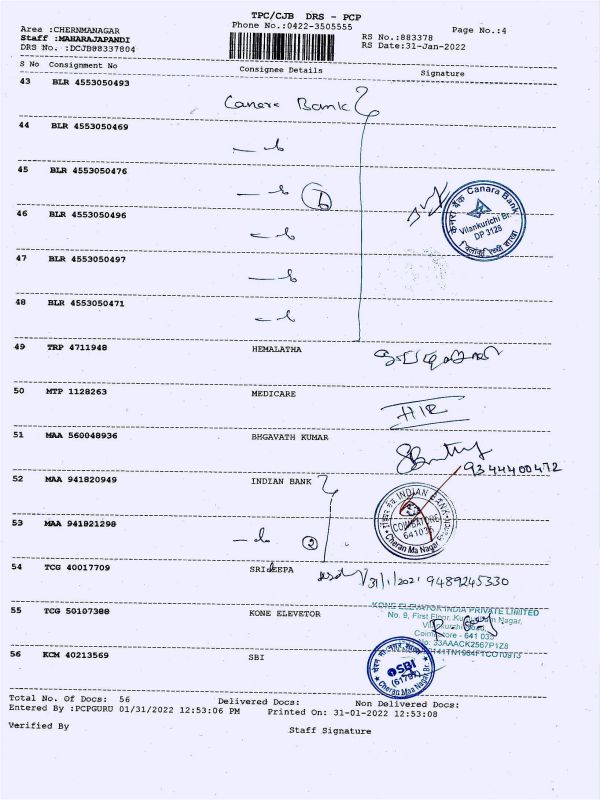 TPC/CJB DRS - PCP
Phone No.:0422-3505555
Page No.:4
Area :CHERNMANAGAR
Staff :MAHARAJAPANDI
DRS No. :DCJB88337804
RS No.:883378
RS Date:31-Jan-2022
S No Consignment No Consignee Details Signature
43 BLR 4553050493
Canara Bank
44 BLR 4553050469
45 BLR 4553050476
46 BLR 4553050496
Canara Bank
Vilankurichi Br.
DP 3128
47 BLR 4553050497
48 BLR 4553050471
49 TRP 4711948 HEMALATHA
50 MTP 1128263 MEDICARE
51 MAA 560048936 BHGAVATH KUMAR
9344400472
52 MAA 941820949 INDIAN BANK
INDIAN BANK
COIMBATORE
641035
Cheran Ma Nagar
53 MAA 941821298
2
54 TCG 40017709 SRIDEEPA
31/1/2021 9489245330
55 TCG 50107388 KONE ELEVETOR
KONE ELEVATOR INDIA PRIVATE LIMITED
No. 9, First Floor, Nagar,
Coimbatore - 641 035
33AAACK2567P1Z8
56 KCM 40213569 SBI
SBI
Cheran Maa Nagar Br.
Total No. Of Docs: 56 Delivered Docs: Non Delivered Docs:
Entered By :PCPGURU 01/31/2022 12:53:06 PM Printed On: 31-01-2022 12:53:08
Verified By Staff Signature